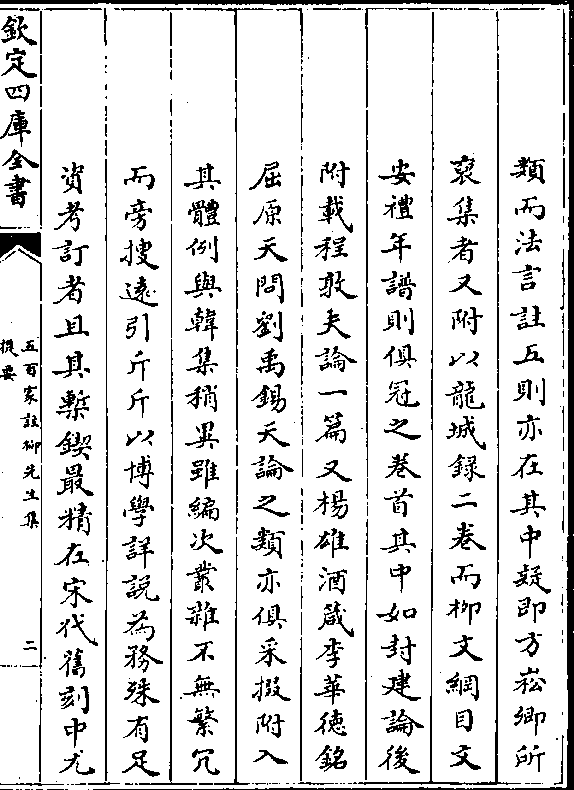 類而法言註五則亦在其中疑即方崧卿所
裒集者又附以龍城録二巻而柳文綱目文
安禮年譜則俱冠之巻首其中如封建論後
附載程敦夫論一篇又楊雄酒箴李華徳銘
屈原天問劉禹錫天論之類亦俱采掇附入
其體例與韓集稍異雖編次叢雜不無繁冗
而旁搜逺引斤斤以博學詳説為務殊有足
資考訂者且其槧鍥最精在宋代舊刻中尤
欽定四庫全書
五百家註柳先生集
提要
二